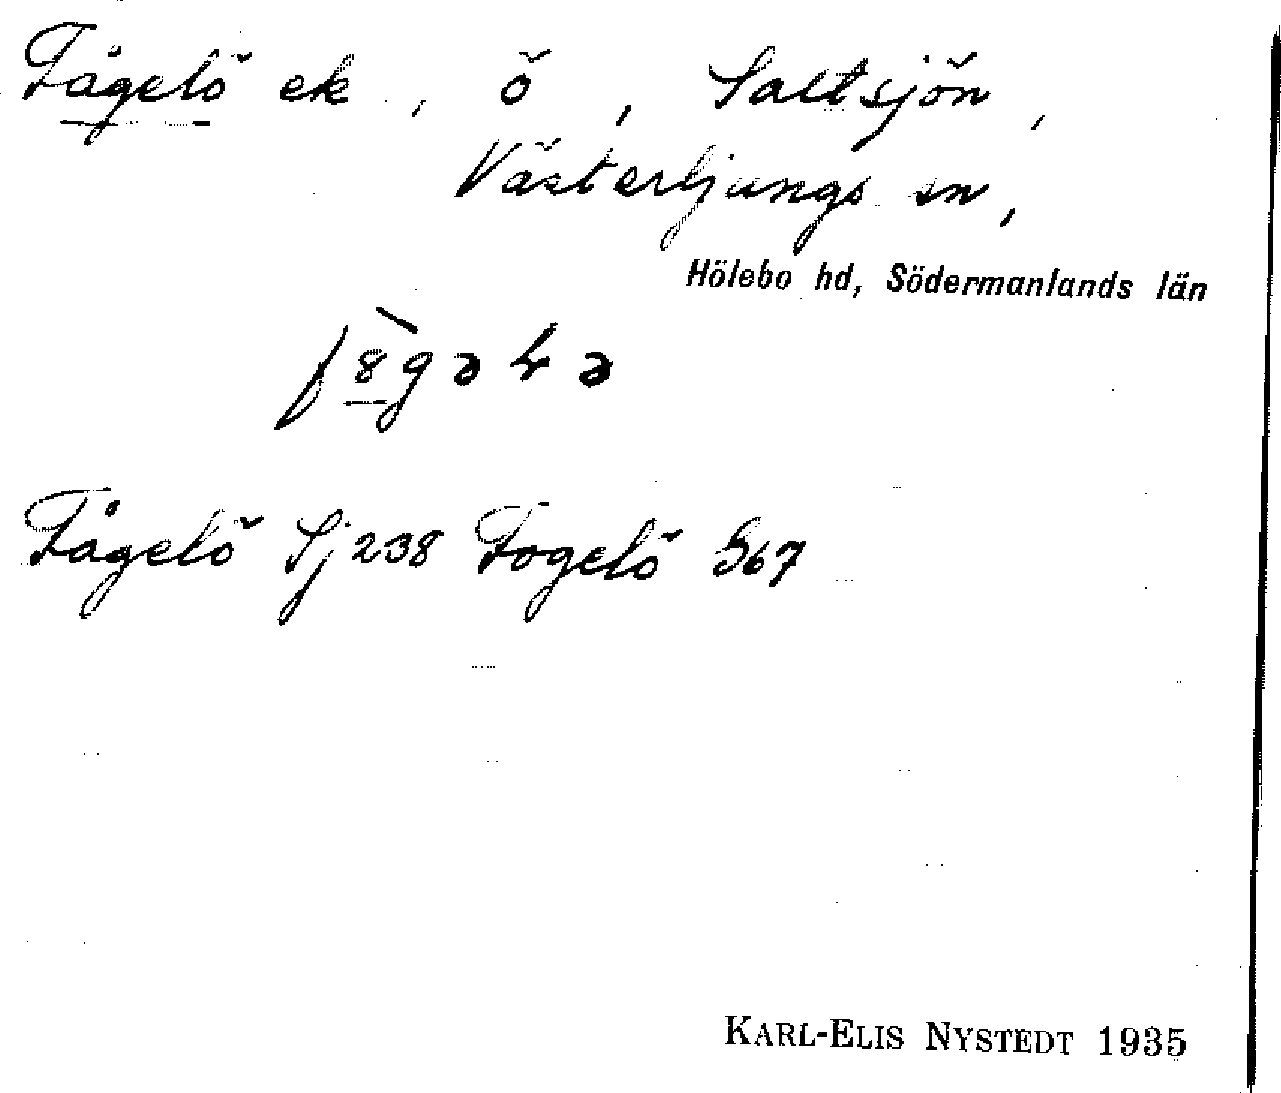 Fågelö ek, ö, Saltsjön,
Västerljungs sn,
Hölebo hd, Södermanlands län
f8̀gəɬə
Fågelö Sj 238 Fogelö S67
KARL-ELIS NYSTEDT 1935